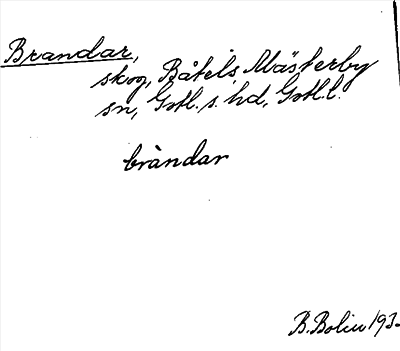 Brandar,
skog, Båtels, Mästerby
sn, Gotl. s. hd, Gotl. l.
bràndar
B. Bolin 193